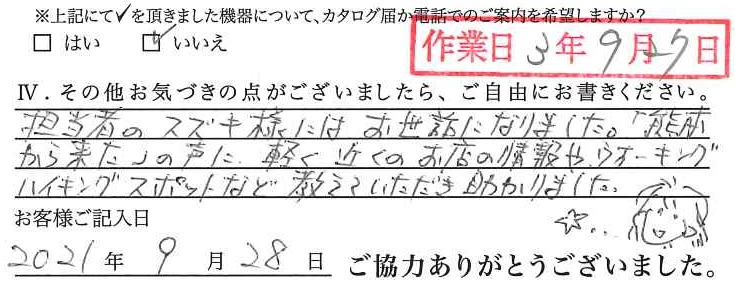 ※上記にて✓を頂きました機器について、カタログ届か電話でのご案内を希望しますか?
□ はい ☑ いいえ
作業日 3年 9月 27日
Ⅳ．その他お気づきの点がございましたら、ご自由にお書きください。
担当者のスズキ様にはお世話になりました。「熊本
から来た」の声に、軽く近くのお店の情報や、ウオーキング
ハイキングスポットなど教えていただき助かりました。
お客様ご記入日
2021年 9月 28日 ご協力ありがとうございました。